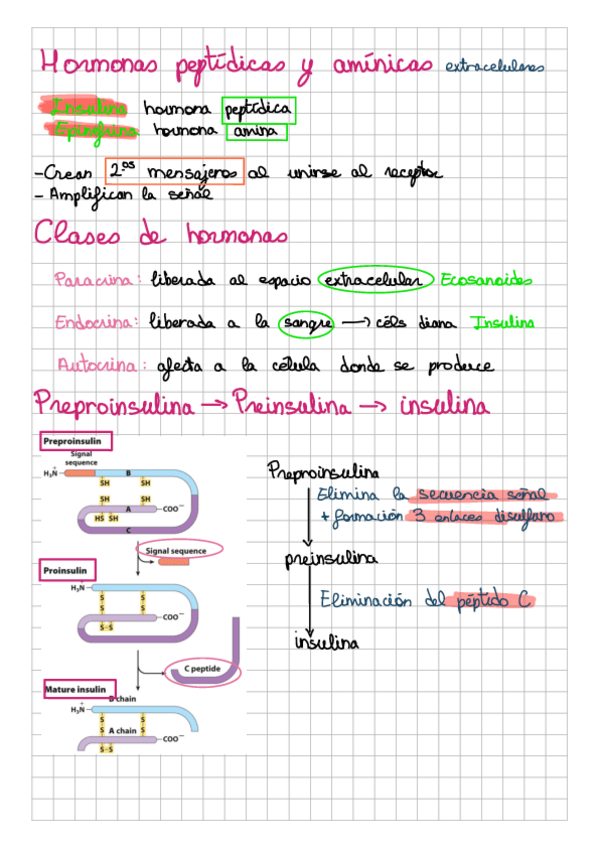 Hormonas peptídicas y amínicas extracelulares
Insulina hormona peptídica
Epinefrina hormona amina
- Crean 2.os mensajeros al unirse al receptor
- Amplifican la señal
Clases de hormonas
Paracrina: liberada al espacio extracelular Ecosanoides
Endocrina: liberada a la sangre → céls diana Insulina
Autocrina: afecta a la célula donde se produce
Preproinsulina → Preinsulina → insulina
Preproinsulin
Signal
sequence
H₃N⁺
B
SH SH
SH SH
A
COO⁻
HS SH
C
Signal sequence
Proinsulin
H₃N⁺
S S
S S
COO⁻
S-S
C peptide
Mature insulin
B chain
H₃N⁺
S S
A chain
S S
COO⁻
S-S
Preproinsulina
Elimina la secuencia señal
+ formación 3 enlaces disulfuro
preinsulina
Eliminación del péptido C
insulina